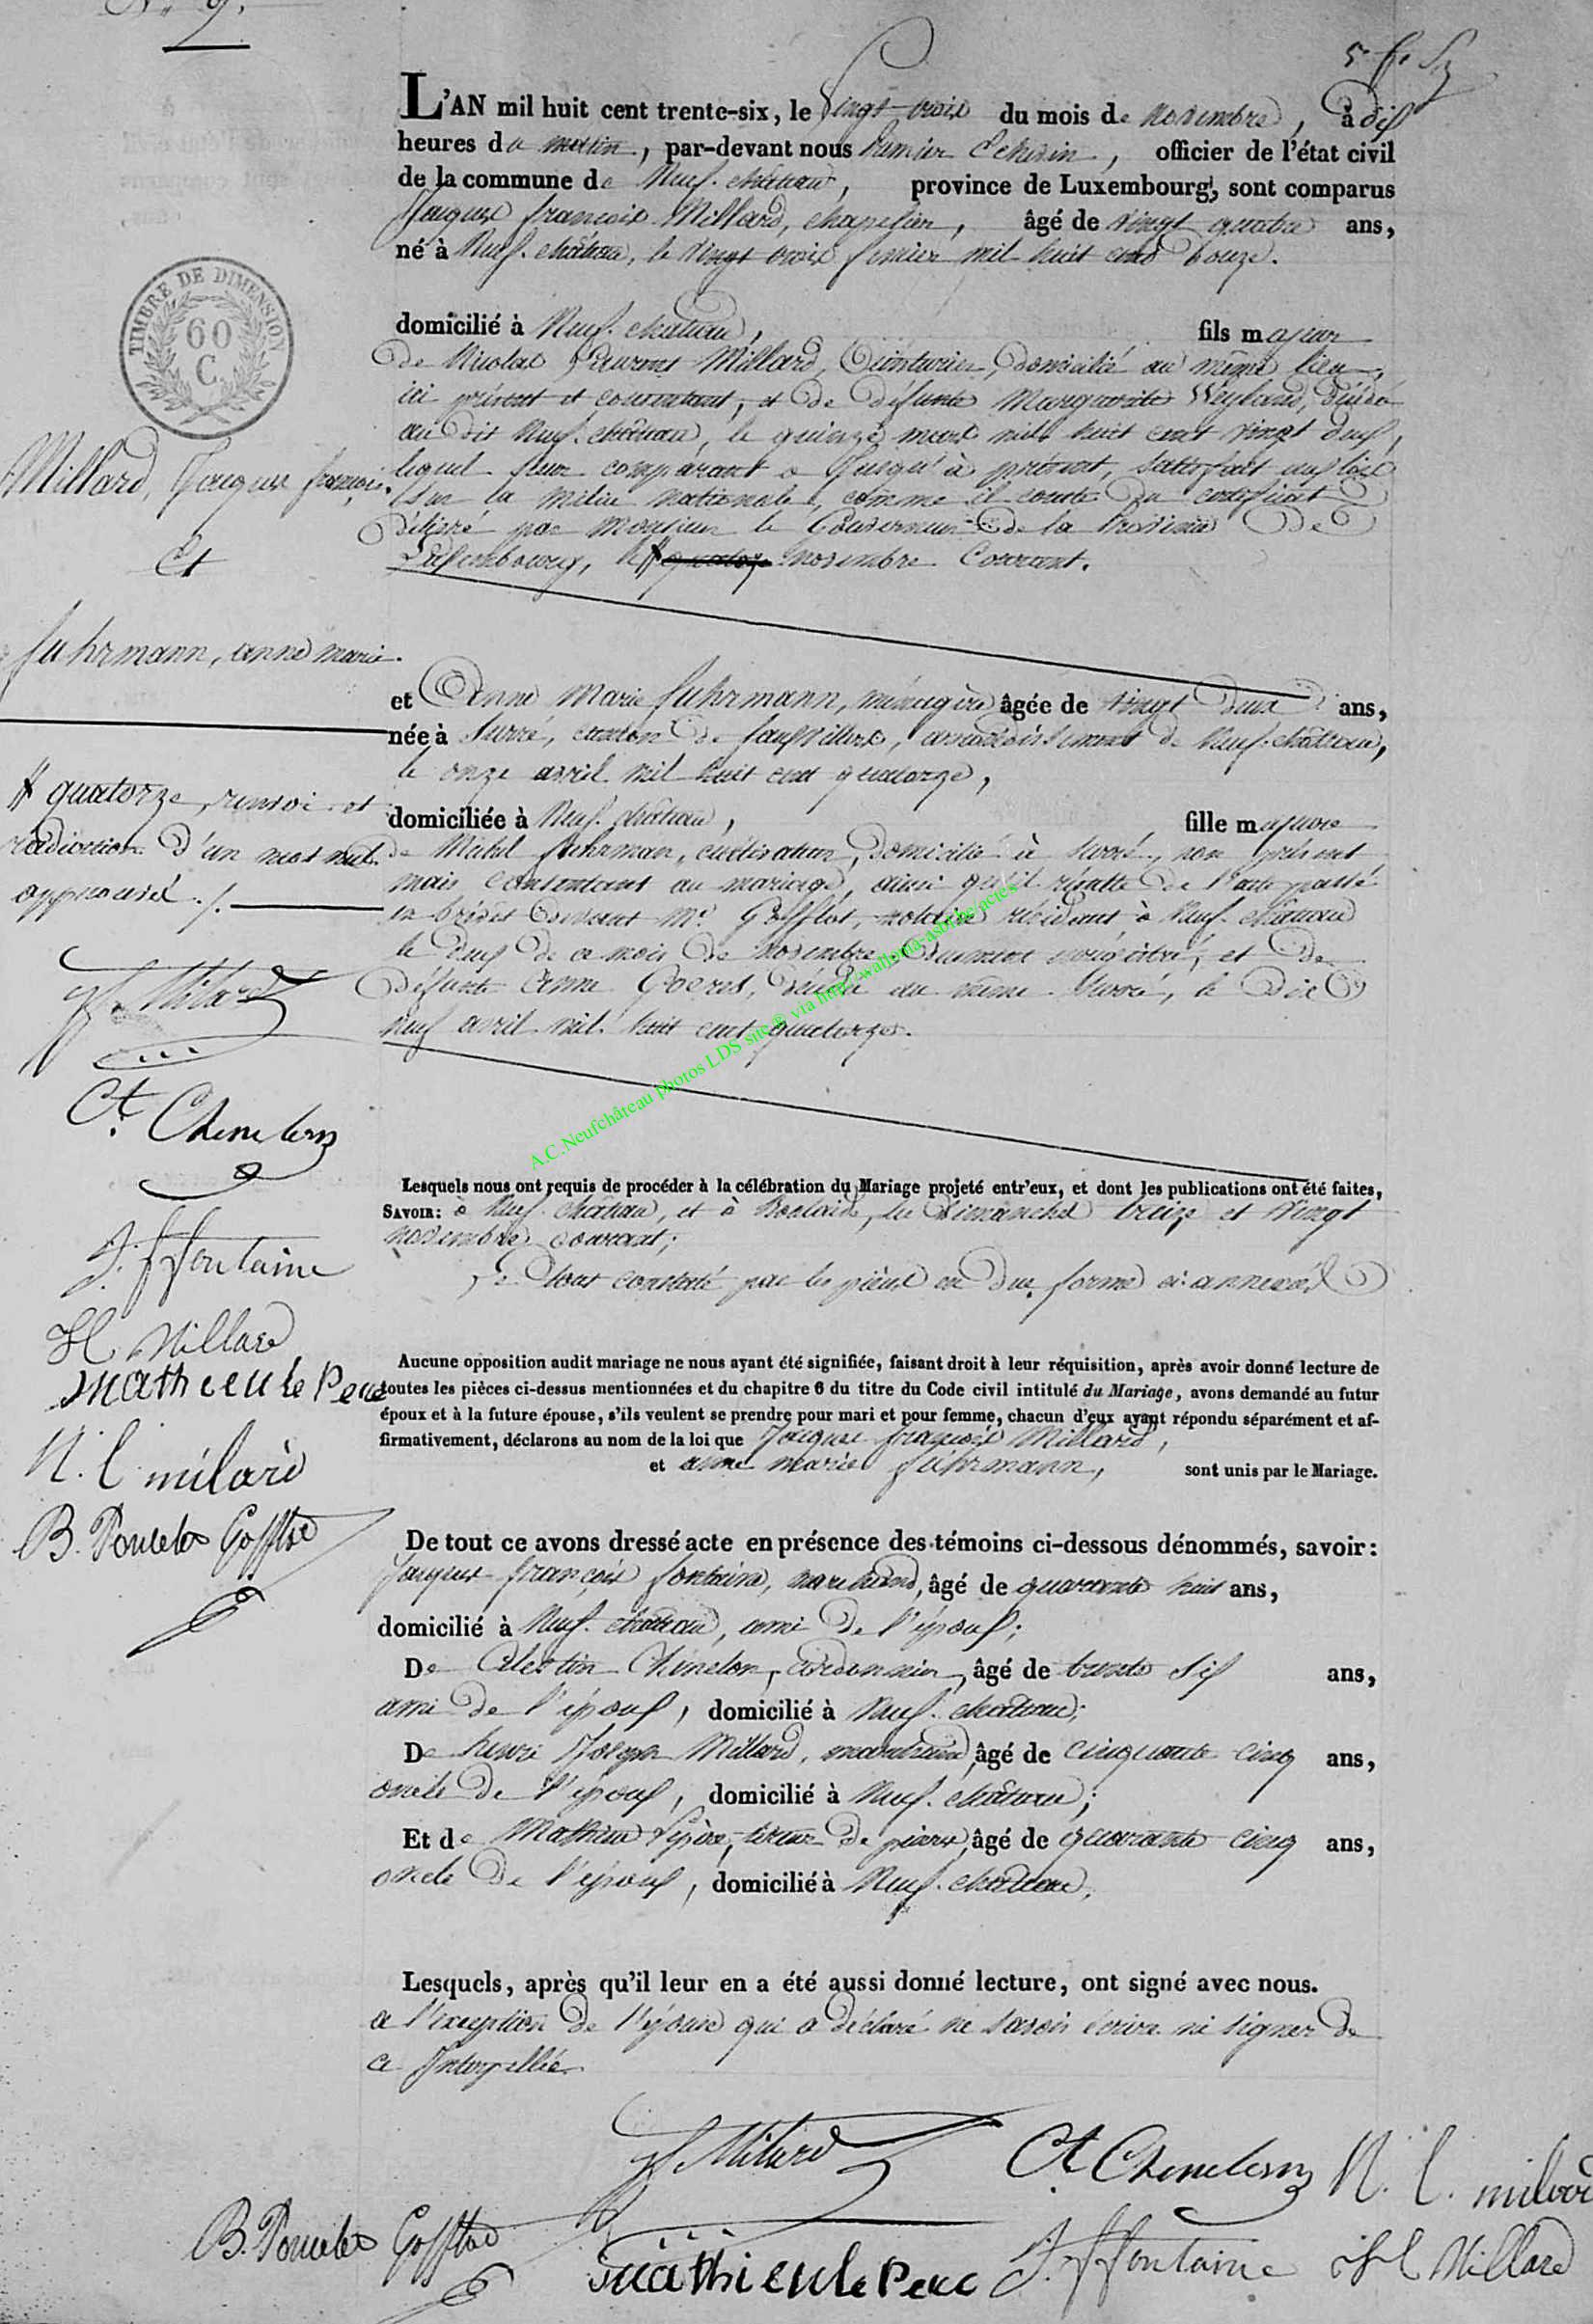 N° 9.
L'AN mil huit cent trente-six, le Vingt trois du mois de novembre, à dix
heures du matin, par-devant nous Echevin, officier de l'état civil
de la commune de Neuf-château, province de Luxembourg, sont comparus
Jacques françois Millard, chapelier, âgé de vingt quatre ans,
né à Neuf-château, le vingt trois fevrier mil huit cent douze.
TIMBRE DE DIMENSION
60
C.
domicilié à Neuf-château, fils majeur
de Nicolas Laurent Millard, Teinturier, domicilié au même lieu,
ici présent et consentant, et de défunte Marguerite Weyland, décédée
au dit Neuf-château, le quinze mars mil huit cent vingt deux,
lequel futur comparant a jusqu'à présent, satisfait aux lois
sur la milice nationale, comme il conste du certificat
délivré par Monsieur le Gouverneur de la Province de
Luxembourg, le # novembre Courant.
Millard, Jacques françois.
Et
fuhrmann, anne marie.
et Anne Marie fuhrmann, ménagère âgée de vingt deux ans,
née à Surré, canton de fauvillers, arrondissement de Neuf-château,
le onze avril mil huit cent quatorze,
domiciliée à Neuf-château, fille majeure
de Michel fuhrman, cultivateur, domicilié à Surré, non présent
mais consentant au mariage, ainsi qu'il résulte de l'acte passé
en brévet devant Me. Gofflot, notaire résidant à Neuf-château
le deux de ce mois de novembre, dument enregistré, et de
défunte Anne Goeres, décédée au même Surré, le dix
neuf avril mil huit cent quatorze.
# quatorze, renvoi et
radiation d'un mot nul
approuvés ./.
Ct. Chenelon
J. f fontaine
H Millard
mathieu le Pere
N. l milard
B. Poncelet Gofflot
A.C.Neufchâteau photos LDS site ® via http://wallonia-asbl.be/actes
Lesquels nous ont requis de procéder à la célébration du Mariage projeté entr'eux, et dont les publications ont été faites,
SAVOIR: à Neuf-château, et à Boulaide, les dimanches treize et vingt
novembre courant;
Le tout constaté par les pièces en due forme ci-annexées
Aucune opposition audit mariage ne nous ayant été signifiée, faisant droit à leur réquisition, après avoir donné lecture de
toutes les pièces ci-dessus mentionnées et du chapitre 6 du titre du Code civil intitulé du Mariage, avons demandé au futur
époux et à la future épouse, s'ils veulent se prendre pour mari et pour femme, chacun d'eux ayant répondu séparément et af-
firmativement, déclarons au nom de la loi que Jacques françois Millard,
et anne marie fuhrmann, sont unis par le Mariage.
De tout ce avons dressé acte en présence des témoins ci-dessous dénommés, savoir:
Jacques françois fontaine, marchand, âgé de quarante huit ans,
domicilié à Neuf-château, ami de l'époux;
De Celestin Chenelon, cordonnier, âgé de trente six ans,
ami de l'époux, domicilié à Neuf-château;
De henri Joseph Millard, marchand, âgé de cinquante cinq ans,
oncle de l'époux, domicilié à Neuf-château;
Et de Mathieu Lepère, tireur de pierres, âgé de quarante cinq ans,
oncle de l'époux, domicilié à Neuf-château,
Lesquels, après qu'il leur en a été aussi donné lecture, ont signé avec nous.
a l'exception de l'épouse qui a déclaré ne savoir écrire ni signer de
ce Interpellée.
jf Milard Ct Chenelon N. l. milard
B. Poncelet Gofflot mathieu le Pere J. f fontaine H Millard